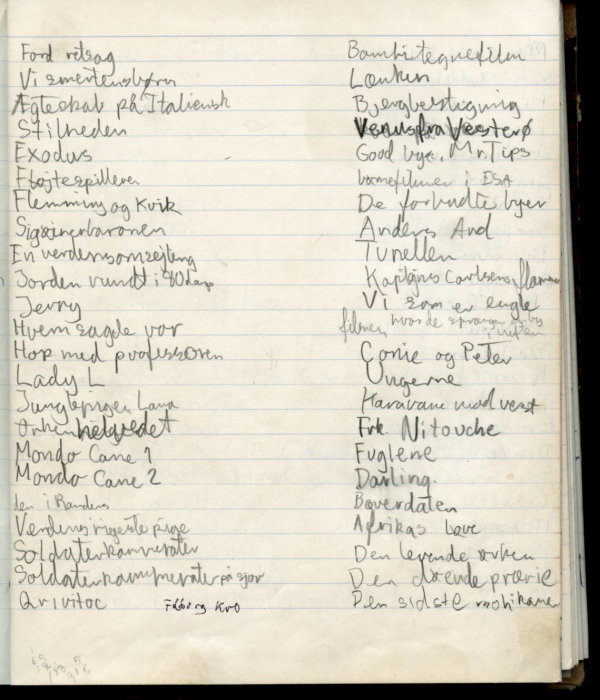 Ford retsag
Vi smertensbørn
Ægteskab på Italiensk
Stilheden
Exodus
Fløjtespilleren
Flemming og Kvik
Sigøinerbaronen
En verdensomsejling
Jorden rundt i 90 dage
Jerry
Hvem sagde vov
Hop med professoren
Lady L
Junglepigen Lana
Ørkenhelvedet
Mondo Cane 1
Mondo Cane 2
den i Randers
Verdens rigeste pige
Soldaterkammerater
Soldaterkammmerater på sjov
Qvivitoc
Fåborg Kvo
Bambi tegnefilm
Lænken
Bjergbestigning
Venus fra Vesterø
Good bye, Mr. Tips
børnefilmen i ESA
De forbudte byer
Anders And
Tunellen
Kaptajns Carlsens flammer
Vi som er engle
filmen hvor de sprænger en by
Conie og Peter
Ungerne
Karavane mod vest
Frk Nitouche
Fuglene
Darling.
Bæverdalen
Afrikas løve
Den levende ørken
Den døende prærie
Den sidste mohikane